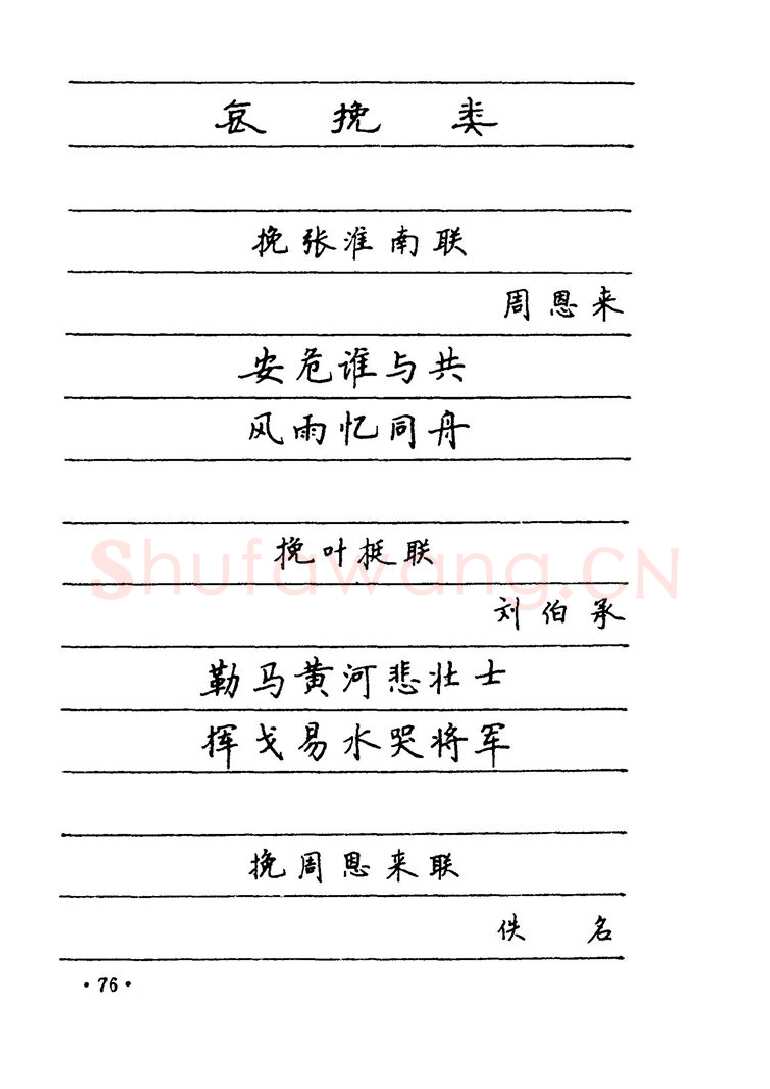 哀挽类
挽张淮南联
周恩来
安危谁与共
风雨忆同舟
挽叶挺联
刘伯承
勒马黄河悲壮士
挥戈易水哭将军
挽周恩来联
佚名
·76·
Shufawang.CN